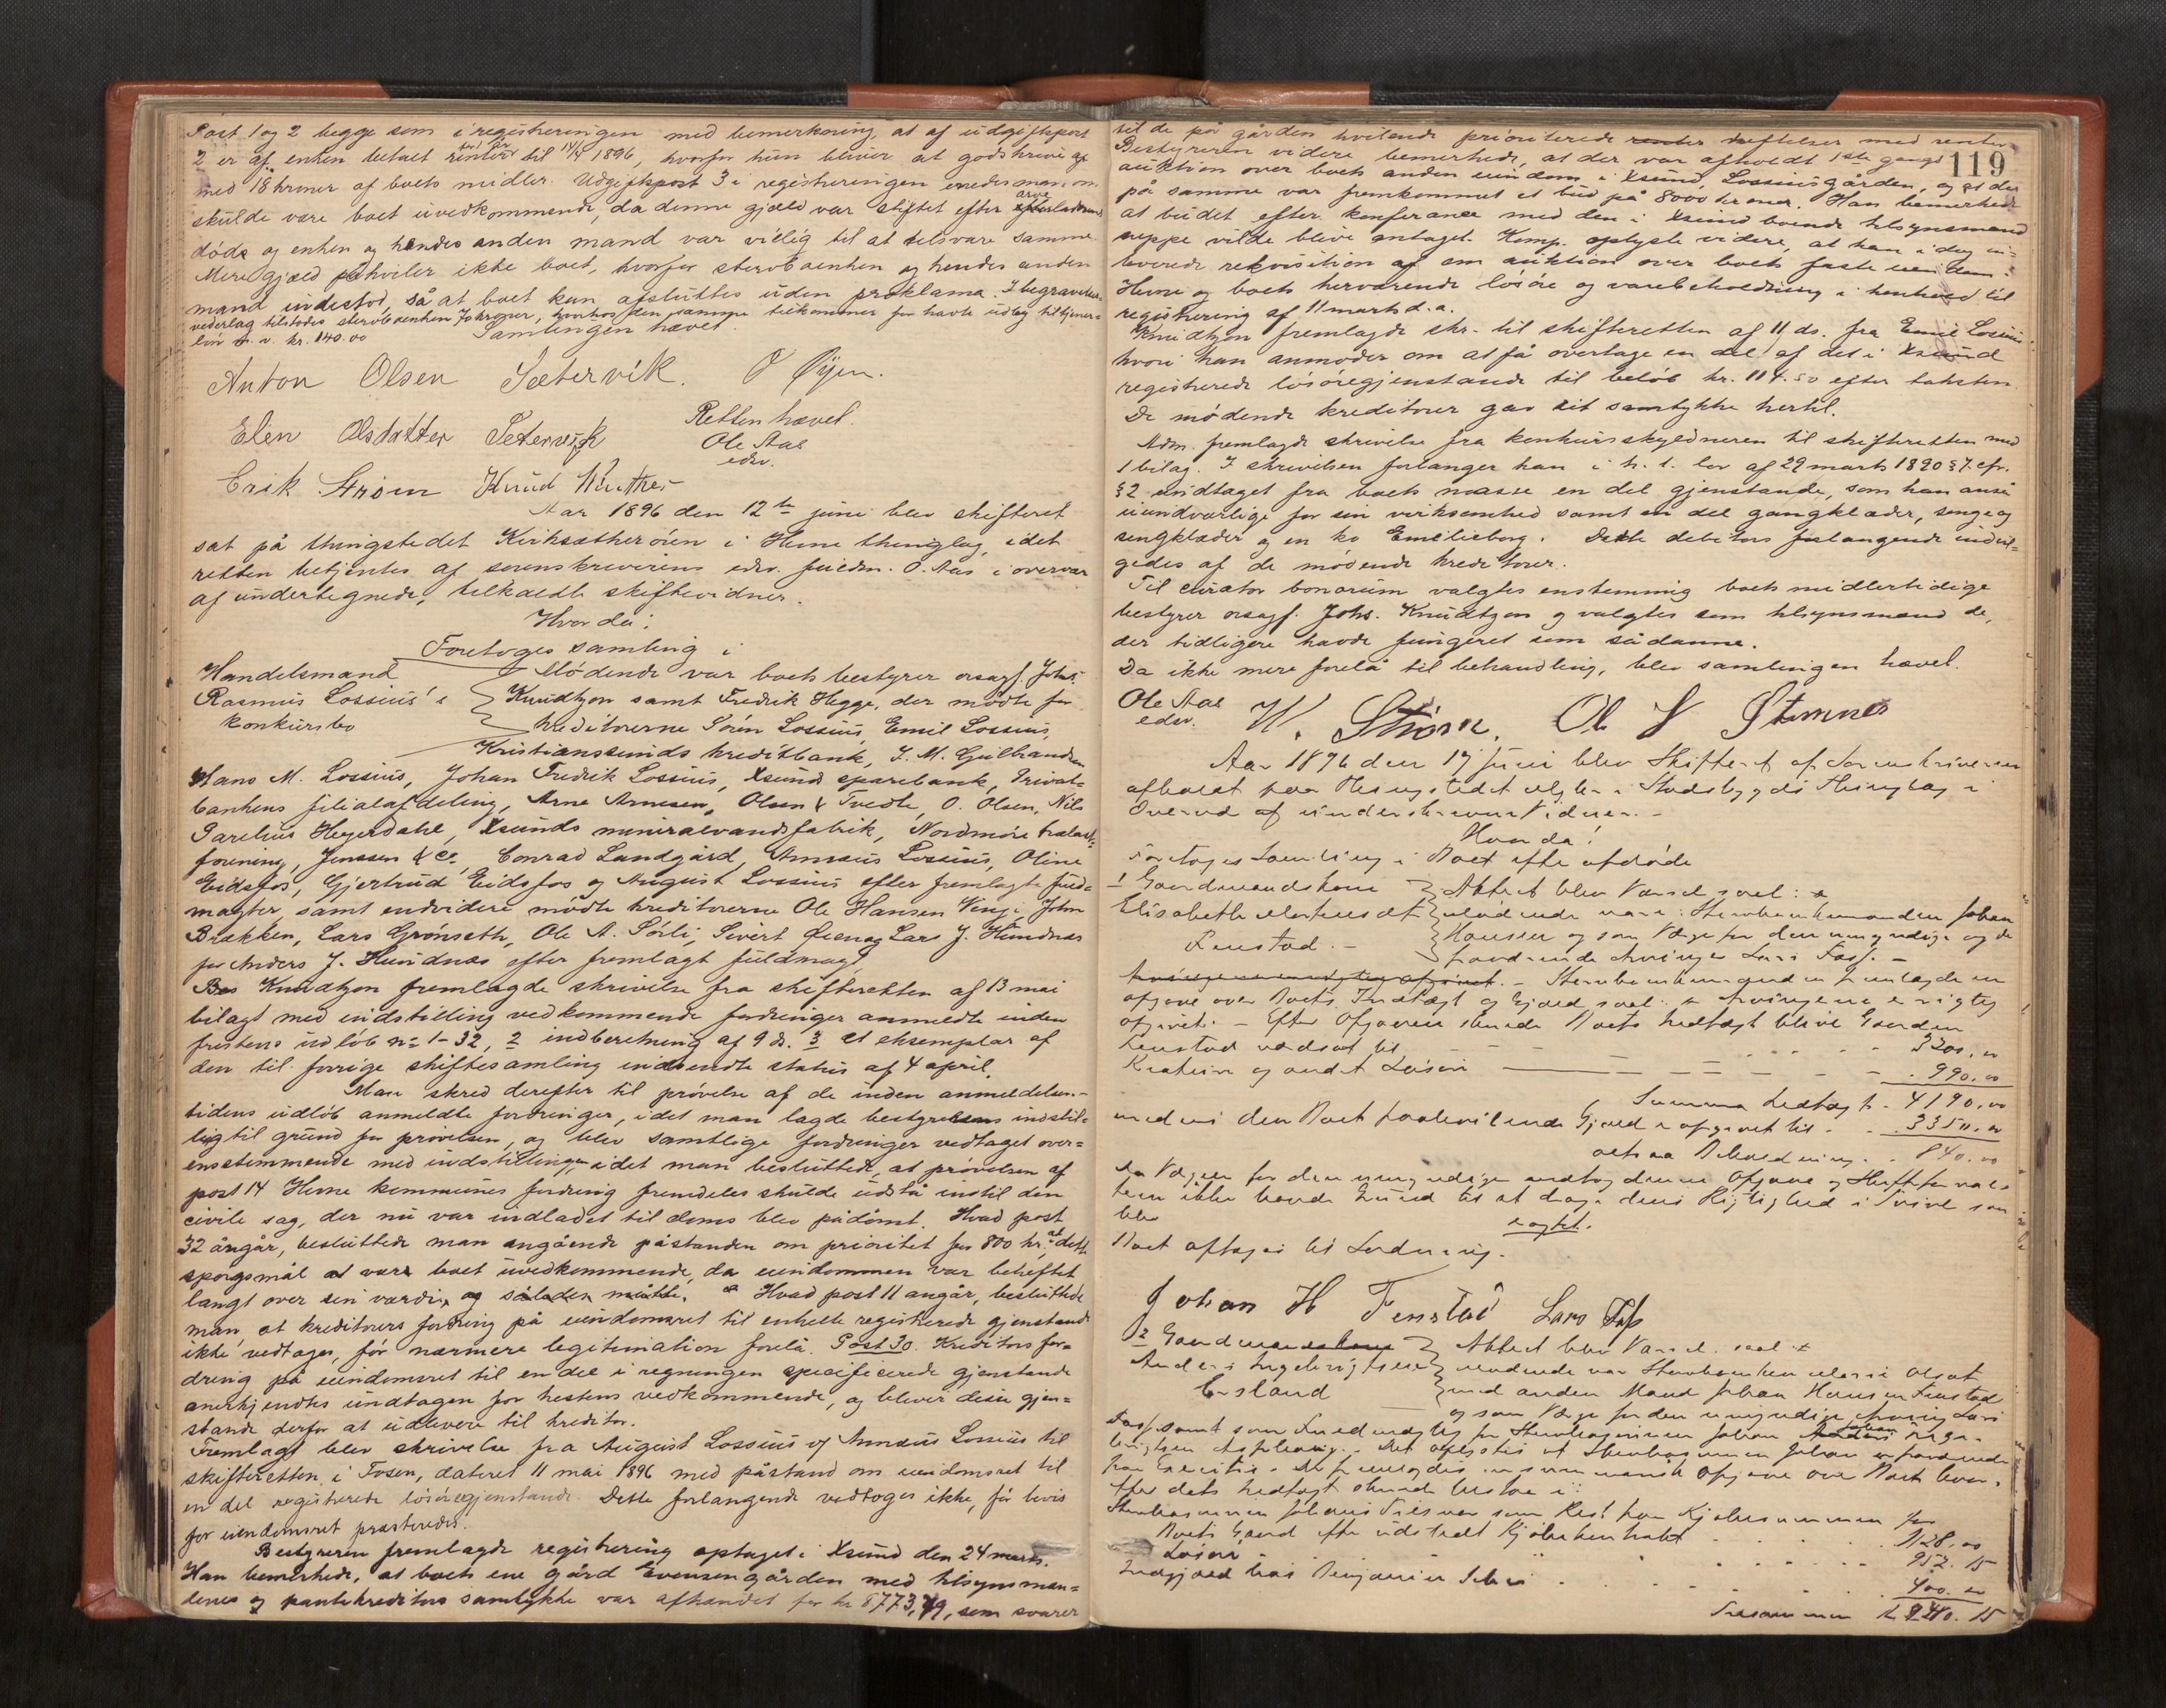 Post 1 og 2 begge som i registreringen med bemerkning, at af udgiftspost
2 er af enken betalt renter til 14/4 1896, hvorfor hun bliver at godskrive
med 18 kroner af boets midler. Udgiftspost 3 i registreringen enedes man om
skulde være boet uvedkommende, da denne gjæld var stiftet efter arveladerens
død og enken og hendes anden mand var villig til at tilsvare samme.
Mere gjæld påhviler ikke boet, hvorfor sterboenken og hendes anden
mand indestod, så at boet kan afsluttes uden proklama. I begravelses-
vederlag tilstodes sterboenken 70 kroner, hvorhos den samme tilkommer for havte udlæg til tjener-
løn m. v. kr. 140.00 Samlingen hævet.
Anton Olsen Sætervik. O Øyen.
Elen Olsdatter Setervik Retten hævet.
Ole Aas
edsv.
Erik Strøm Knud
Aar 1896 den 12te juni blev skifteret
sat på thingstedet Kirksætherøren i Hevne thinglag, idet
retten betjentes af sorenskriverens edsv. fuldm. O. Aas i overvær
af undertegnede, tilkaldte skiftevidner.
Hvor da:
Foretoges samling i
Handelsmand
Rasmus Lossius's
konkursbo
Mødende var boets bestyrer orsagf. Johs.
Knudtzon samt Fredrik Hegge, der mødte for
kreditorerne Søren Lossius, Emil Lossius,
Kristianssunds kreditbank, J. M. Gulbrandsen
Hans M. Lossius, Johan Fredrik Lossius, Xsunds sparebank, Privat-
bankens filialafdeling, Arne Arnesen, Olsen & Tvedte, O. Olsen, Nils
Parelius Heyerdahl, Xsunds mineralvandsfabrik, Nordmøre trælast-
forening, Jenssen & Co., Conrad Landgård, Annæus Lossius, Oline
Eidsfos, Gjertrud Eidsfos og August Lossius efter fremlagte fuld-
magter, samt endvidere mødte kreditorerne Ole Hansen Vinje, John
Brækken, Lars Grønseth, Ole A. Sørli, Sivert Øien og Lars J. Hundnæs
for Anders J. Hundnæs efter fremlagt fuldmagt
Bes Knudtzon fremlagde skrivelse fra skifteretten af 13 mai
bilagt med indstilling vedkommende fordringer anmeldte inden
fristens udløb no 1-32, 2 indberetning af 9 ds. 3 et eksemplar af
den til forrige skiftesamling indsendte status af 4 april.
Man skred derefter til prøvelse af de inden anmeldelses-
tidens udløb anmeldte fordringer, idet man lagde bestyrelsens indstil-
ling til grund for prøvelsen, og blev samtlige fordringer vedtaget over-
ensstemmende med indstillingen, idet man besluttede, at prøvelsen af
post 14 Hevne kommunes fordring fremdeles skulde udstå indtil den
civile sag, der nu var indladet til doms blev pådømt. Hvad post
32 angår, besluttede man angående påstanden om prioritet for 800 kr. at dette
spørgsmål at være boet uvedkommende, da eiendommen var beheftet
langt over sin værdi, og således måtte. Hvad post 11 angår, besluttede
man, at kreditors fordring på eiendomsret til enkelte registrerede gjenstande
ikke vedtages, før nærmere legitimation forelå. Post 30. Kreditors for-
dring på eiendomsret til en del i regningen specificerede gjenstande
anerkjendtes undtagen for hestens vedkommende, og bliver disse gjen-
stande derfor at udlevere til kreditor.
Fremlagt blev skrivelse fra August Lossius og Annæus Lossius til
skifteretten i Fosen, dateret 11 mai 1896 med påstand om eiendomsret til
en del registrerede løsøregjenstande. Dette forlangende vedtoges ikke, før bevis
for eiendomsret præsteredes.
Bestyreren fremlagde registrering optaget i Xsund den 24 marts.
Han bemerkede, at boets ene gård Evensengården med tilsynsmæn-
denes og pantekreditors samtykke var afhændet for kr 8773,49, som svarer
119
til de på gården hvilende prioriterede renter heftelser med renter.
Bestyreren videre bemerkede, at der var afholdt 1ste gangs
auktion over boets anden eiendom i Xsund, Lossiusgården, og at der
på samme var fremkommet et bud på 8000 kroner. Han bemerkede
at budet efter konferance med den i Xsund boende tilsynsmand
neppe vilde blive antaget. Komp. oplyste videre, at han idag in-
leverede rekvisition af om auktion over boets faste eiendom i
Hevne og boets herværende løsøre og varebeholdning i henhold til
registrering af 11 marts d. a.
Knudtzon fremlagde skr. til skifteretten af 11 ds. fra Emil Lossius
hvori han anmoder om at få overtage en del af det i Xsund
registrerede løsøregjenstande til beløb kr. 114.50 efter taksten.
De mødende kreditorer gav sit samtykke hertil.
Adm. fremlagde skrivelse fra konkursskyldneren til skifteretten med
1 bilag. I skrivelsen forlanger han i h. t. lov af 29 marts 1890 § 7 cfr.
§ 2 undtaget fra boets masse en del gjenstande, som han anså
uundværlige for sin virksomhed samt en del gangklæder, senge og
sengklæder og en ko Emilieborg. Dette debitors forlangende indvil-
gedes af de mødende kreditorer.
Til curator bonorum valgtes enstemmig boets midlertidige
bestyrer orsagf. Johs. Knudtzon og valgtes som tilsynsmænd de,
der tidligere havde fungeret som sådanne.
Da ikke mere forelå til behandling, blev samlingen hævet.
Ole Aas
edsv. K. Strøm. Ol J Stamnes
Aar 1896 den 17 juni blev Skifteret af Sorenskriveren
afholdt paa Thingstedet i Stadsbygds Thinglag i
Overvær af underskrevne Vidner.
Hvor da:
Foretoges Samling i Boet efter afdøde
1 Gaardmandskone
Elisabeth Mortensdt
Fenstad.
Aktet blev Varsel saal:
mødende var: Sterboenkemanden Johan
Hansen og som Værge for den umyndige og de
fraværende Arvinger Lars Fass.
Sterboenkemanden fremlagde en
opgave over Boets Indtægt og Gjæld saal. Arvingerne rigtig
opgivet. - Efter Opgaven skulde Boets Indtægt blive Gaarden
Fenstad værdsat til 3200.00
Kreaturer og andet Løsøre 990.00
Summa Indtægt 4190.00
medens den Boet paahvilende Gjæld opgivet til 3350.00
altsaa Beholdning 840.00
Da Værgen for den umyndige modtog denne Opgave og Skifteforval-
teren ikke havde Grund til at drage dens Rigtighed i Tvivl saa
blev
Boet optages til Slutning.
Johan H Fenstad Lars Fass
2 Gaardmand
Anders Ingebrigtsen
Aktet blev Varsel saal:
mødende var Sterboenken Marie Olsdt
med anden Mand Johan Hansen Fenstad
og som Værge for den umyndige Arving Lars
Fass samt som Fuldmægtig for Sterboarvingen Johan
Boets Gaard efter udstedt Kjøbekontrakt 1128.00
Løsøre 952.15
400.00